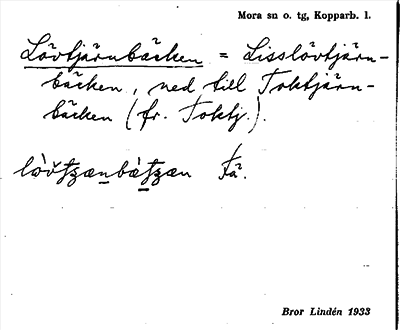 Mora sn o. tg, Kopparb. l.
Lövtjärnbäcken = Lisslövtjärn-
bäcken, ned till Toktjärn-
bäcken (fr. Toktj.).
Bror Lindén 1933